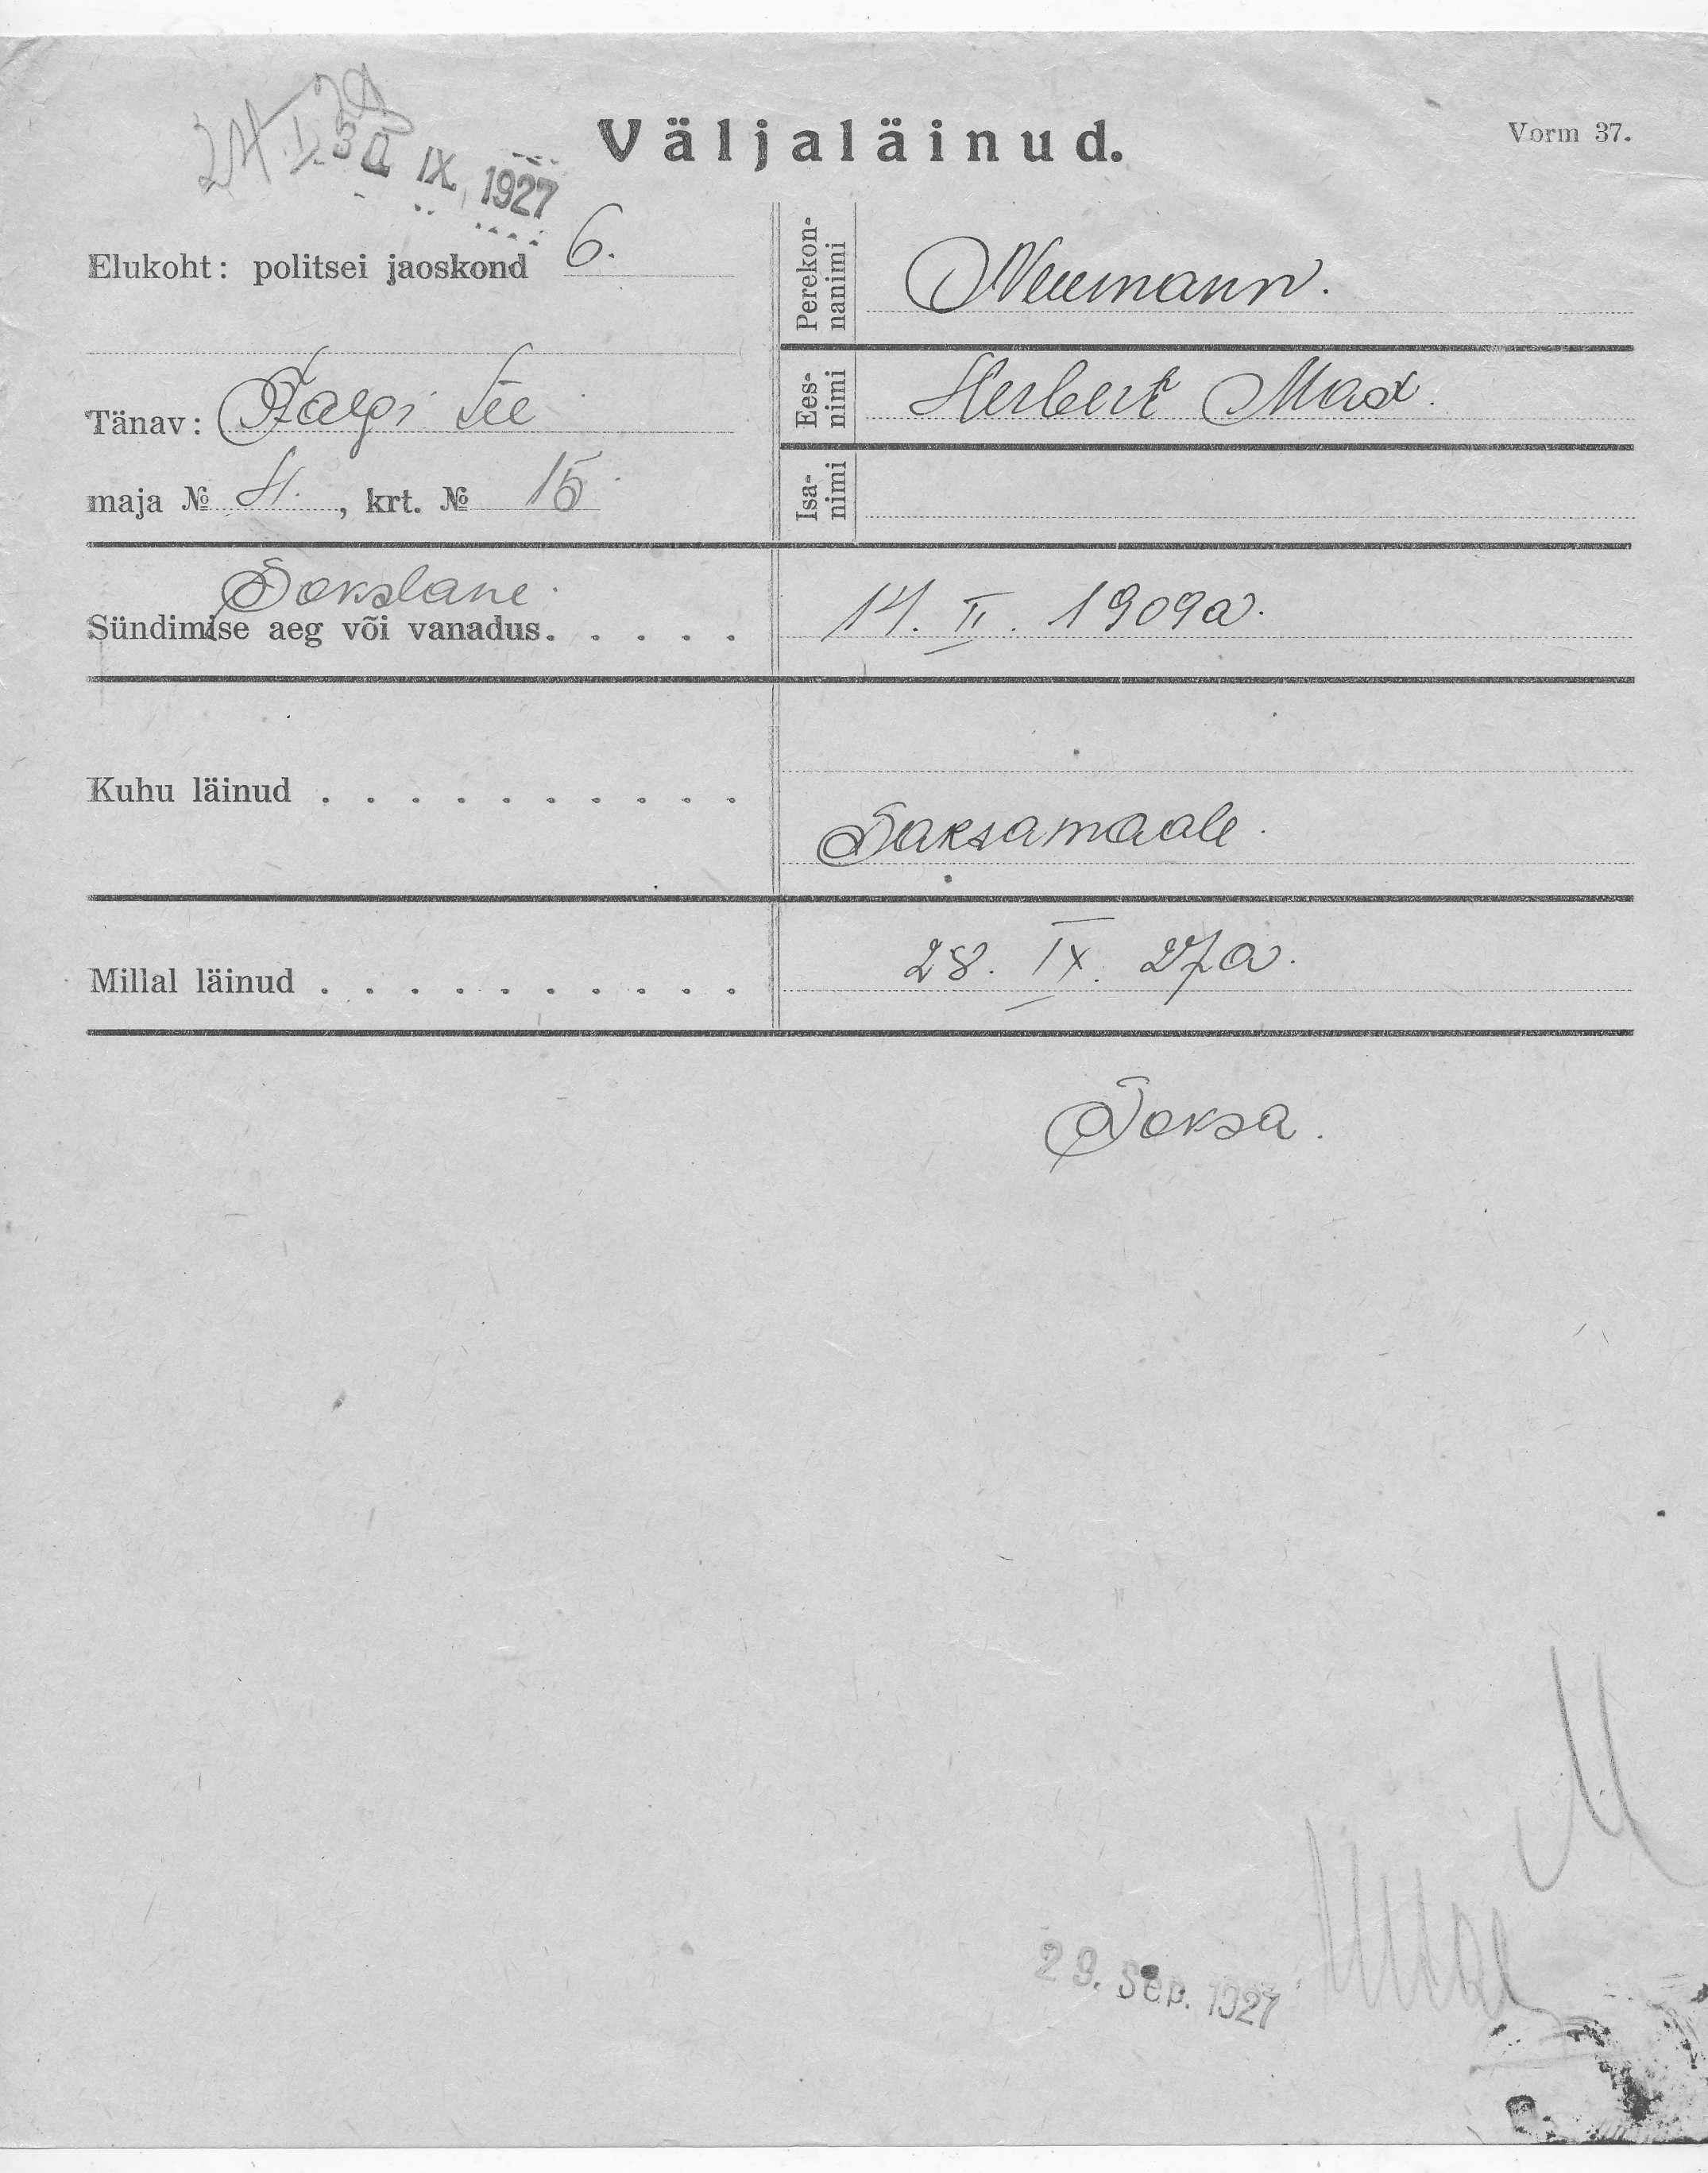 Väljaläinud.
Vorm 37.
30 IX 1927
Elukoht: politsei jaoskond 6.
Tänav: tee
maja № 4., krt. № 15
Perekon-
nanimi
Neumann.
Ees-
nimi
Herbert Max.
Isa-
nimi
Sakslane.
Sündimise aeg või vanadus. . . . . .
14. II. 1909a.
Kuhu läinud . . . . . . . . . . .
Saksamaale.
Millal läinud . . . . . . . . . . .
28. IX. 27a.
Saksa.
29. Sep. 1927